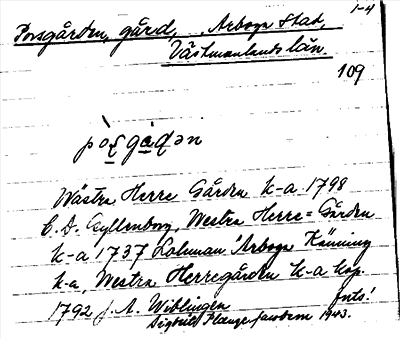 1-4
Porsgården, gård, Arboga stad,
Västmanlands län.
109
pòʂgàɖən
Wästra Herre Gården k-a 1798
C. D. Gyllenborg, Westra Herre=Gården
k-a 1737 Lohman Arboga Känning
k-a, Westra Herregården k-a kop.
1792 J. A. Wiblingen forts!
Sigfrid 1943.